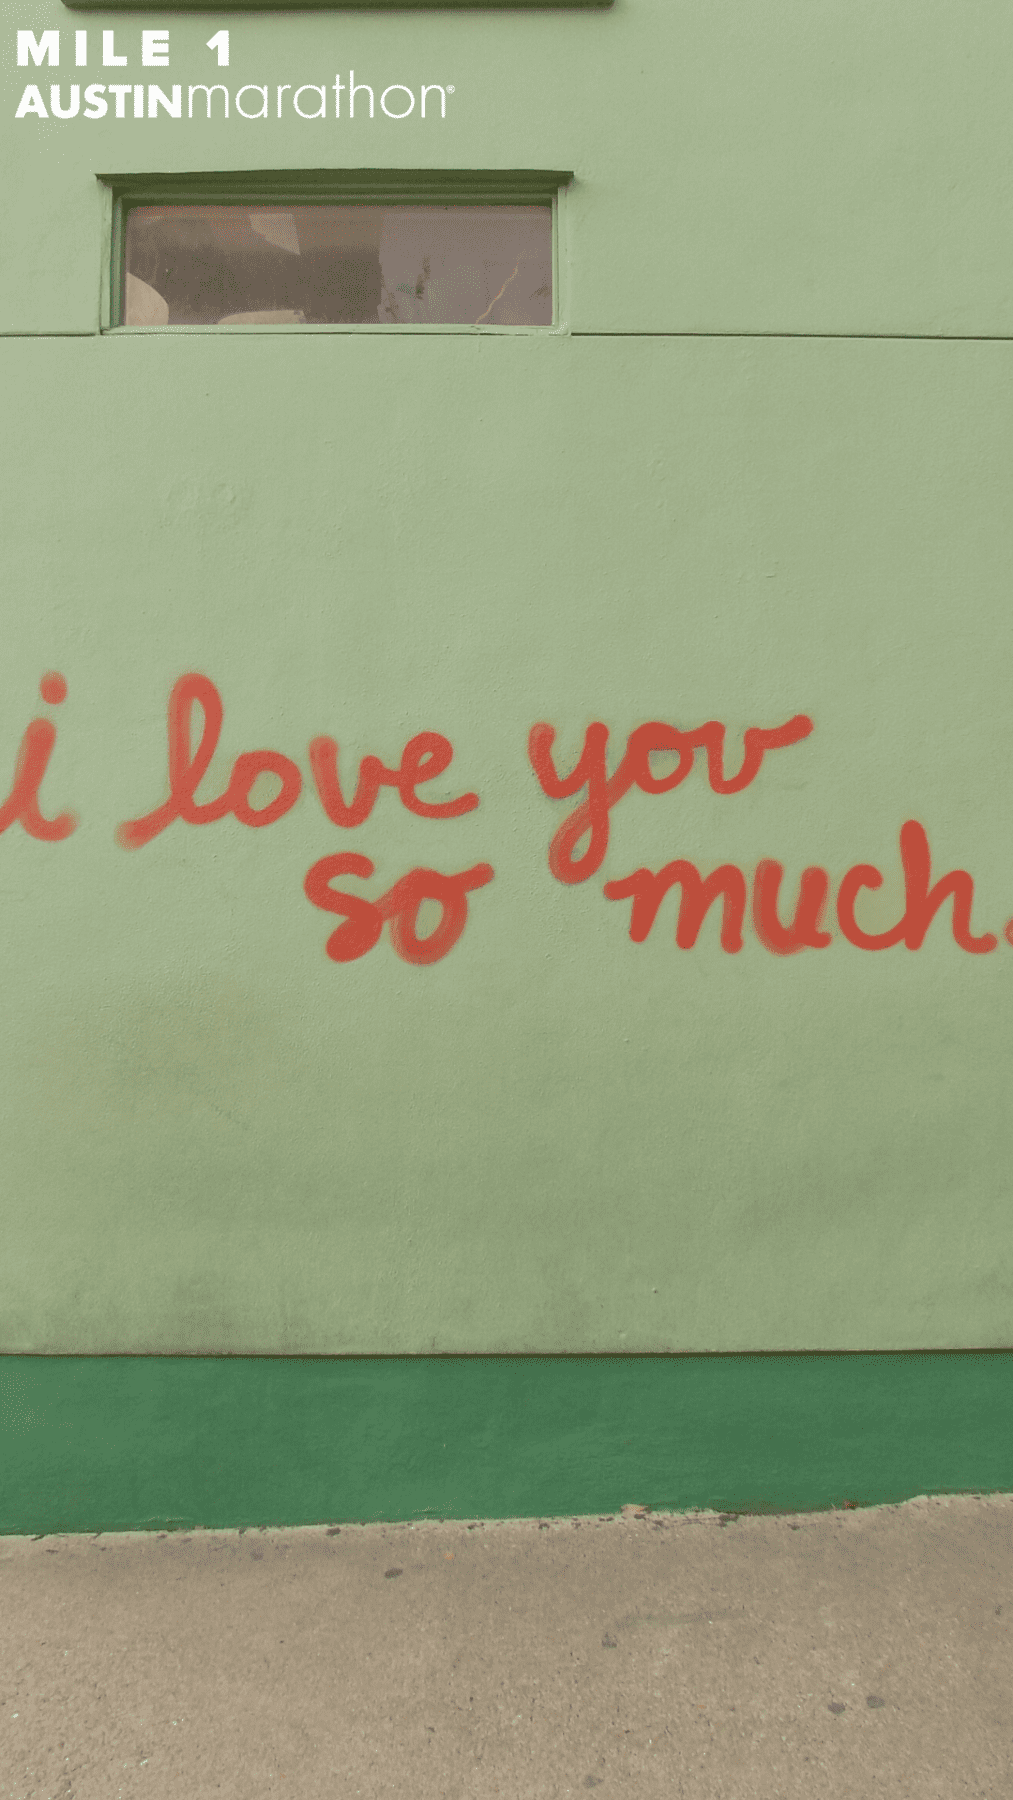 MILE 1
AUSTINmarathon®
i love you
so much.